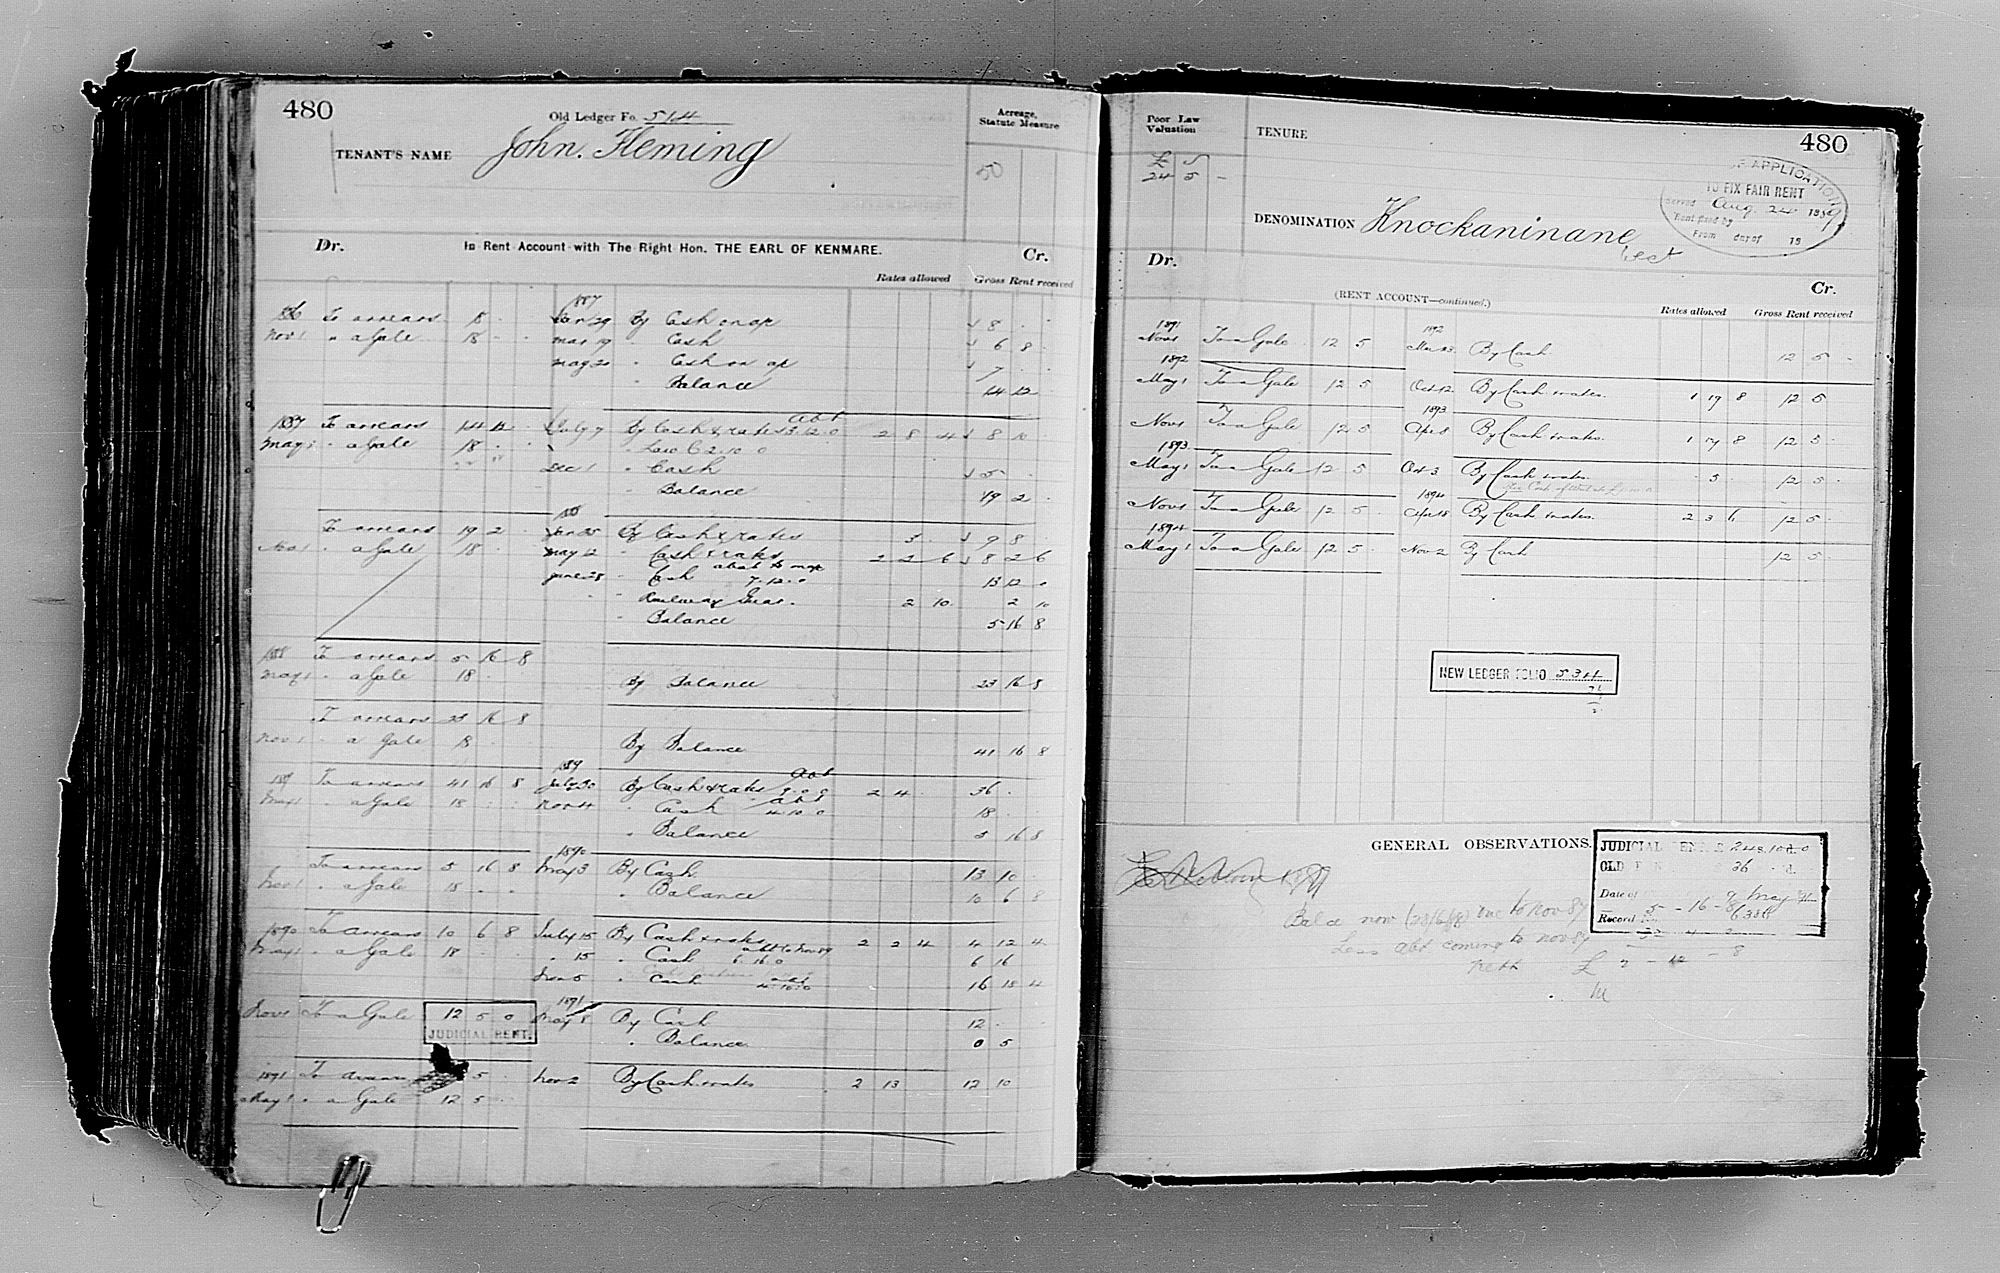 480
Old Ledger Fo. 514
TENANT'S NAME John. Fleming
Acreage, Statute Measure
50
Dr. In Rent Account with The Right Hon. THE EARL OF KENMARE. Cr.
Rates allowed Gross Rent received
1887
1886 To arrears 18 Jan 29 By Cash on ap 8
Nov 1 " a Gale 18 Mar 19 " Cash 6 8
May 20 " Cash on ap 7
" Balance 14 12
1887 To arrears 14 12 July 7 By Cash & rates abt 3.12.0 2 8 4 8 10
May 1 " a Gale 18 " Law C 2.10 0
Dec 1 " Cash 5
" Balance 19 2
188
To arrears 19 2 Jan 25 By Cash & rates 3 9 8
Nov 1 " a Gale 18 May 12 " Cash & rates 2 2 6 8 2 6
June 28 " Cash abat to 7.12.0 13 12 0
" Railway 2 10 2 10
" Balance 5 16 8
1888 To arrears 5 16 8
May 1 " a Gale 18 By Balance 23 16 8
To arrears 23 16 8
Nov 1 " a Gale 18 By Balance 41 16 8
1889
1889 To arrears 41 16 8 July 30 By Cash & rates abt 9.0.0 2 4 36
May 1 " a Gale 18 Nov 4 " Cash abt 4.10.0 18
" Balance 5 16 8
1890
To arrears 5 16 8 May 3 By Cash 13 10
Nov 1 " a Gale 18 " Balance 10 6 8
1890 To arrears 10 6 8 July 15 By Cash & rates 2 2 4 4 12 4
May 1 " a Gale 18 " 15 " Cash abt to Nov 89 6.16.0 6 16
Nov 5 " Cash abt 4.10.0 16 18 4
1891
Nov 1 To a Gale 12 5 0 May 8 By Cash 12
JUDICIAL RENT.
" Balance 0 5
1891 To arrears 5 Nov 2 By Cash & rates 2 13 12 10
May 1 " a Gale 12 5
Poor Law Valuation
£ 5
24 5 -
TENURE
480
OF APPLICATION
TO FIX FAIR RENT
Served Aug. 24 1889
Rent fixed by
From day of 18
DENOMINATION Knockaninane
West
Dr. Cr.
(RENT ACCOUNT—continued.)
Rates allowed Gross Rent received
1891 1892
Nov 1 To a Gale 12 5 Mar 23 By Cash 12 5
1892
May 1 To a Gale 12 5 Oct 12 By Cash & rates. 1 19 8 12 5
1893
Nov 1 To a Gale 12 5 Apl 8 By Cash & rates. 1 17 8 12 5
1893
May 1 To a Gale 12 5 Oct 3 By Cash & rates. 5 12 5
1894
Nov 1 To a Gale 12 5 Apl 18 By Cash & rates. 2 3 6 12 5
1894
May 1 To a Gale 12 5 Nov 2 By Cash 12 5
NEW LEDGER FOLIO 534
GENERAL OBSERVATIONS.
JUDICIAL RENT £24s.10d.0
OLD RENT 36 d.
Date of 9 May
Record No.
Balce now (23/16/8) due to Nov 87 5 - 16 - 8
Less abt coming to Nov 87
Nett £ 2 - - 8